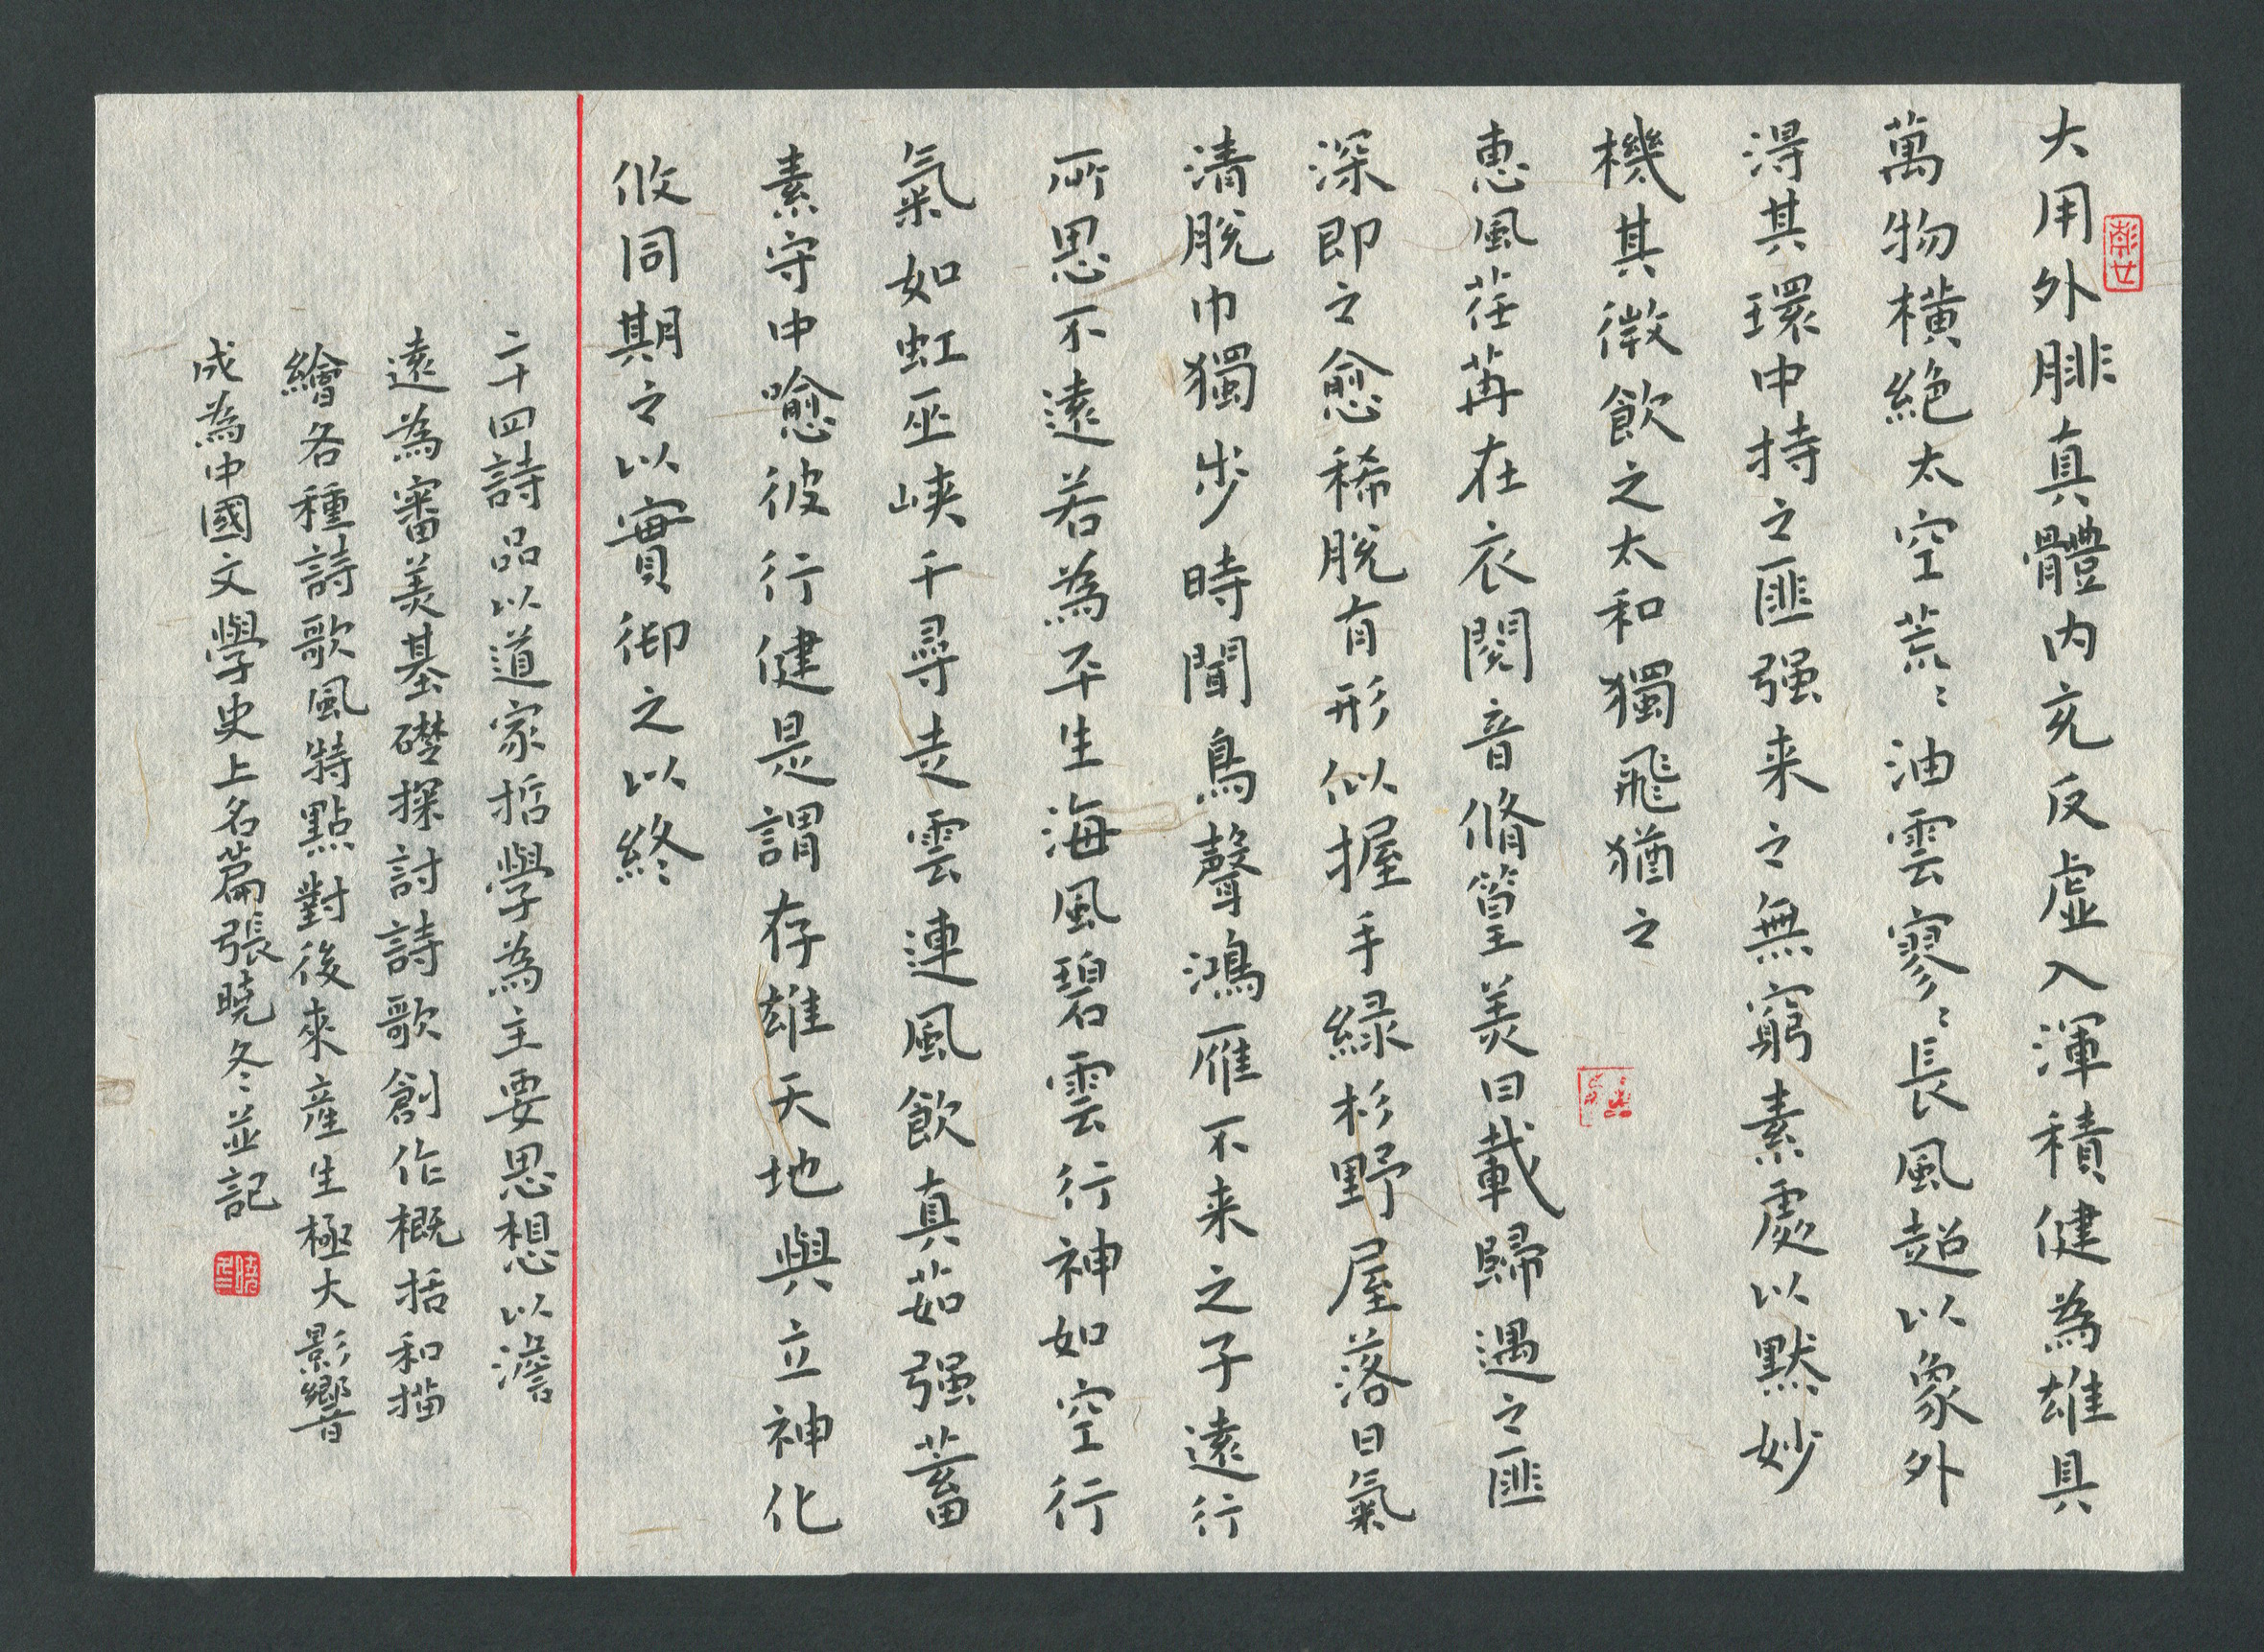 大用外腓真體内充反虛入渾積健為雄具
萬物横絶太空荒〻油雲寥〻長風超以象外
得其環中持之匪强来之無窮素處以默妙
機其微飲之太和獨飛猶之
惠風荏苒在衣閱音脩篁美曰載歸遇之匪
深即之愈稀脱有形似握手緑杉野屋落日氣
清脱巾獨步時聞鳥聲鴻雁不来之子遠行
所思不遠若為平生海風碧雲行神如空行
氣如虹巫峽千尋走雲連風飲真茹强蓄
素守中喻彼行健是謂存雄天地與立神化
攸同期之以實御之以終
二十四詩品以道家哲學為主要思想以澹
遠為審美基礎探討詩歌創作概括和描
繪各種詩歌風特點對後來産生極大影響
成為中國文學史上名篇張曉冬並記